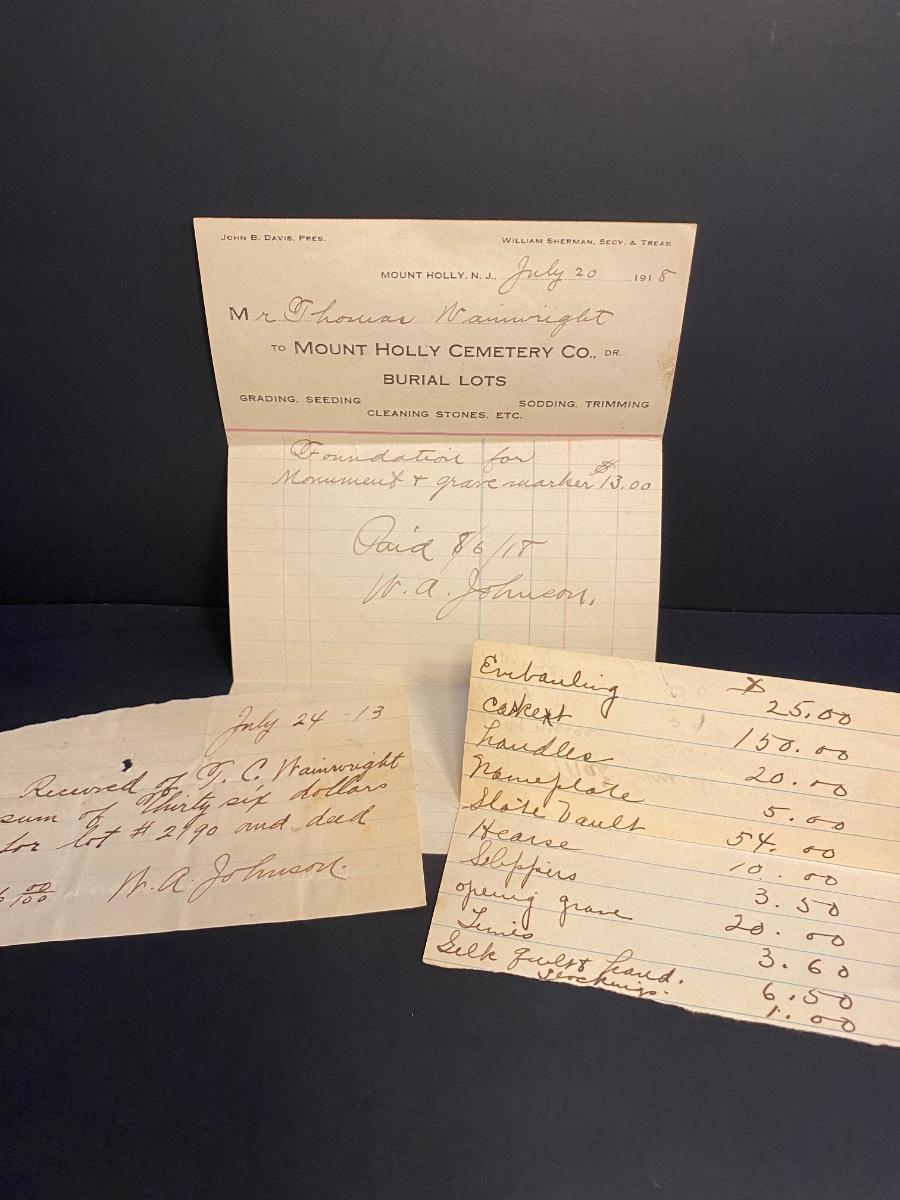 JOHN B. DAVIS, PRES. WILLIAM SHERMAN, SECY. & TREAS
MOUNT HOLLY, N. J., July 20 1918
Mr Thomas Wainwright
TO MOUNT HOLLY CEMETERY CO., DR.
BURIAL LOTS
GRADING, SEEDING SODDING, TRIMMING
CLEANING STONES, ETC.
Foundation for
Monument & grave marker $13.00
Paid 8/6/18
W. A. Johnson.
July 24 - 13
Received of T. C. Wainwright
sum of Thirty six dollars
for lot # 290 and deed
W. A. Johnson.
6 00/100
Embauling $ 25.00
Casket 150.00
handles 20.00
Nameplate 5.00
Slate Vault 54.00
Hearse 10.00
Slippers 3.50
opening grave 20.00
3.60
Silk quilt & hand. 6.50
Stockings. 1.00